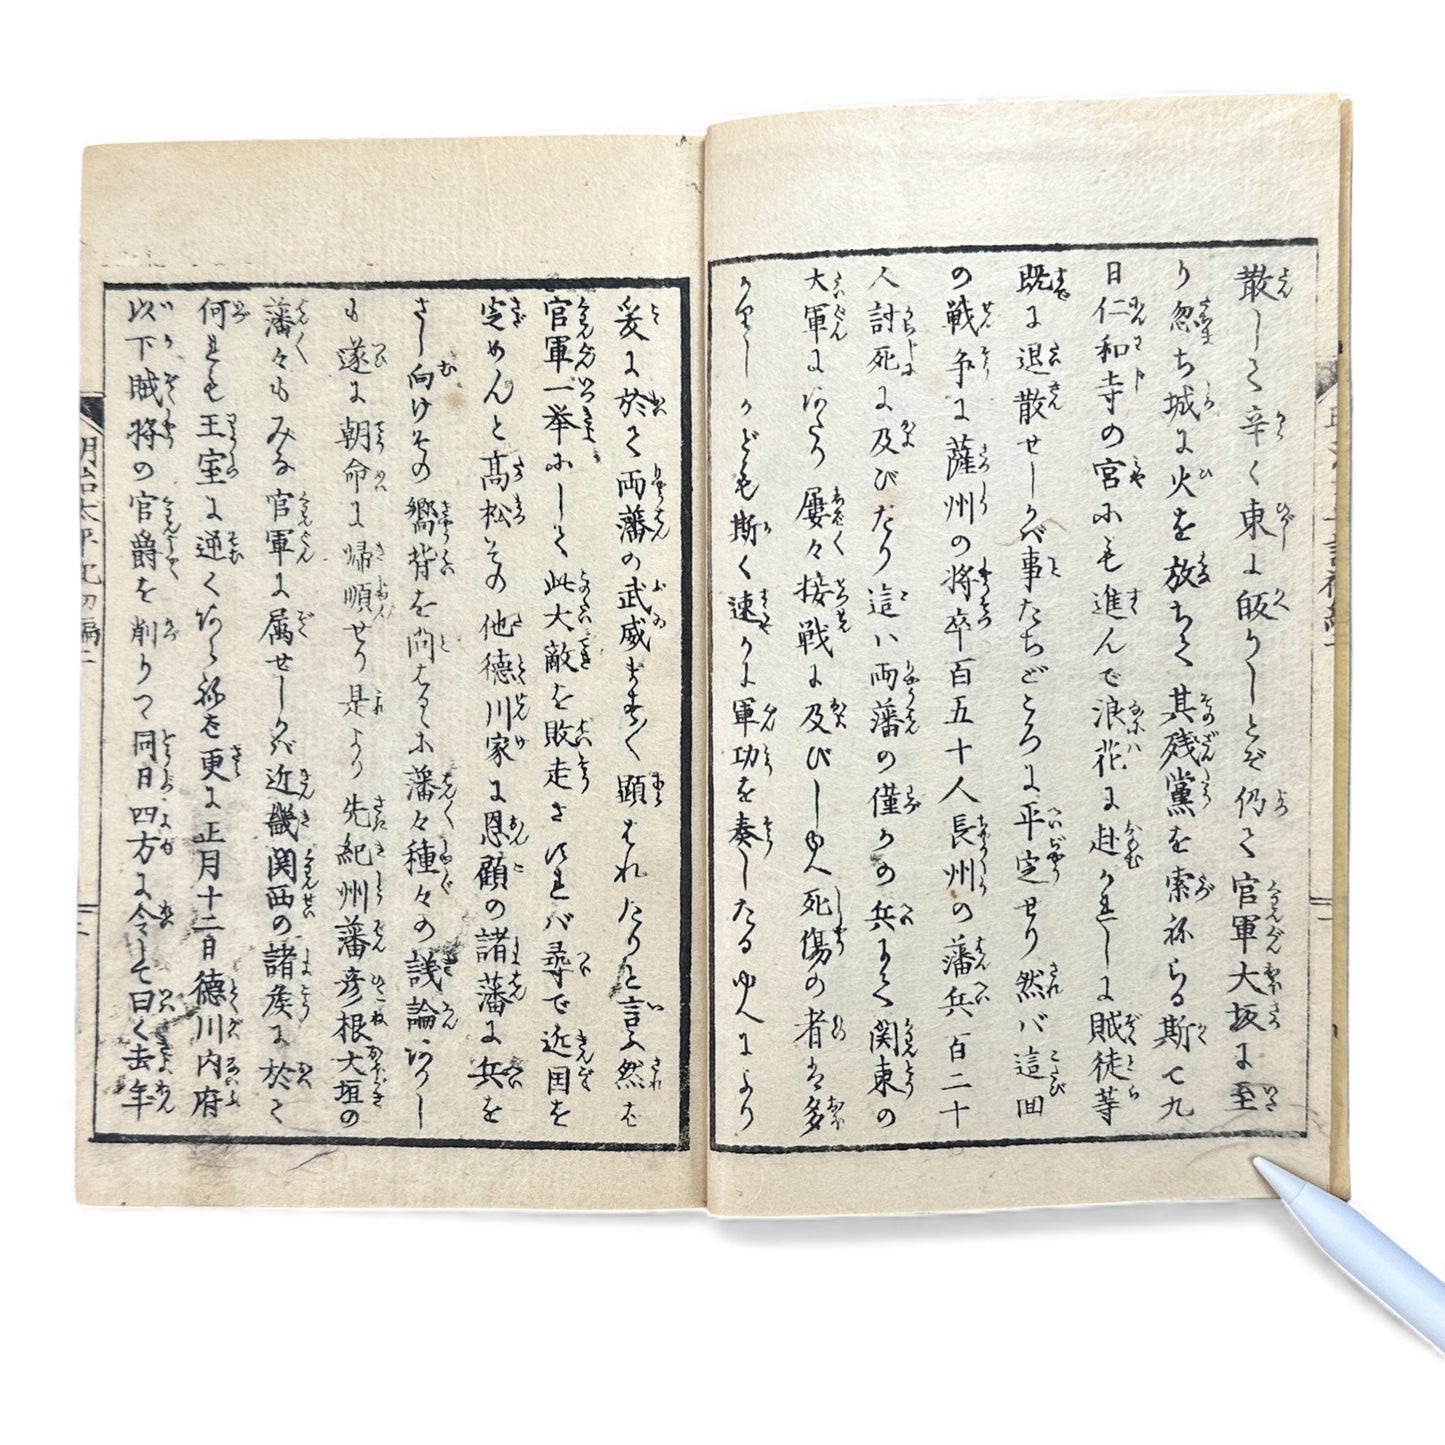 散して辛く東に皈りしとぞ仍て官軍大坂に至
り忽ち城に火を放ちて其残黨を索ねらる斯て九
日仁和寺の宮にも進んで浪花に赴かれしに賊徒等
既に退散せしかバ事たちどころに平定せり然バ這回
の戦争に薩州の将卒百五十人長州の藩兵百二十
人討死に及びたり這ハ両藩の僅かの兵にて関東の
大軍にあたり屡々接戦に及びしゆへ死傷の者も多
かりしかども斯く速かに軍功を奏したるゆへにより
爰に於て両藩の武威ます〳〵顕はれたりと言ふ然ば
官軍一挙にして此大敵を敗走させけれバ尋で近国を
定めんと髙松その他徳川家に恩顧の諸藩に兵を
さし向けその嚮背を問はるゝに藩々種々の議論ありし
も遂に朝命に帰順せり是より先紀州藩彦根大垣の
藩々もみな官軍に属せしかバ近畿関西の諸矦に於て
何れも王室に逆くあらねば更に正月十二日德川内府
以下賊将の官爵を削りつ同日四方に令して曰く去年
明治太平记初編二